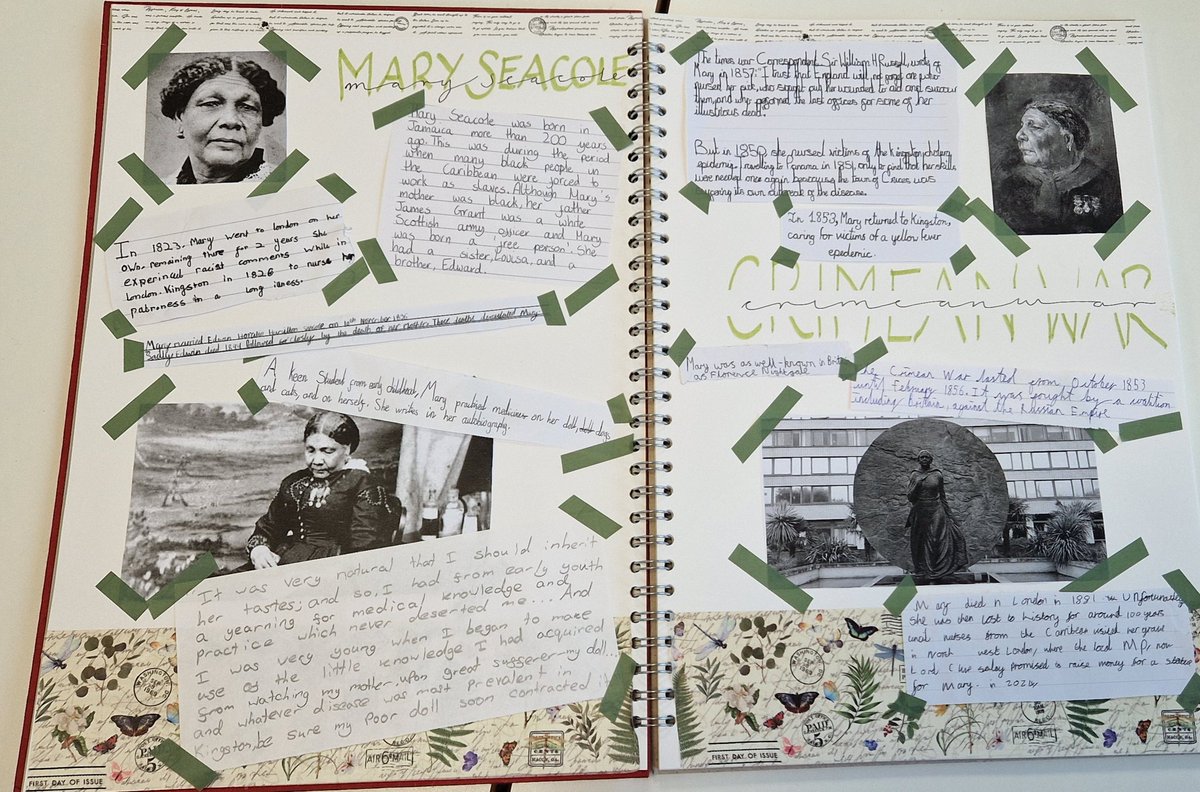 MARY SEACOLE
mary seacole
Mary Seacole was born in
Jamaica more than 200 years
ago. This was during the period
when many black people in
the Caribbean were forced to
work as slaves. Although Mary's
mother was black, her father
James Grant was a white
Scottish army officer and Mary
was born a free person'. She
had a sister, Louisa, and a
brother, Edward.
In 1823. Mary went to london on her
own. remaining there for 2 years she
racist comments while in
london. Kingston in 1826 to nurse her
patroness in a long illness.
Mary married Edwin Horatio Hamilton seacole on 10th November 1836
Sadly Edwin died 1844 followed by the death of her mother. These deaths devastated Mary
A keen Student from early childhood, Mary practised medicine on her doll, dogs
and cats, and on herself. She writes in her autobiography.
It was very natural that I should inherit
her tastes; and so, I had from early youth
a yearning for medical knowledge and
practice which never deserted me... And
I was very young when I began to make
use of the little knowledge I had acquired
from watching my mother, upon great sufferer-my doll...
and whatever disease was most prevalent in
Kingston, be sure my poor doll soon contracted it
FIRST DAY OF ISSUE
The times war Correspondent Sir William H Russell, wrote of
Mary in 1857: "I trust that England will not forget one who
nursed her sick, who sought out her wounded to aid and succour
them, and who performed the last offices for some of her
illustrious dead.
But in 1850, she nursed victims of the Kingston cholera
epidemic. Travelling to Panama in 1851, only to find that her skills
were needed once again because the town of Cruces was
suffering its own outbreak of the disease.
In 1853, Mary returned to Kingston,
caring for victims of a yellow fever
epedemic.
CRIMEAN WAR
crimean war
Mary was as well-known in
as Florence Nightingale
The Crimean War lasted from, October 1853
until February 1856. It was fought by a coalition
including Britain, against the Russian Empire
Mary died in London in 1881
she was then lost to history for around 100 years
until nurses from the visited her grave
in North west London, where the local MP, now
Lord. Clive promised to raise money for a
for Mary. in
FIRST DAY OF ISSUE
AIR MAIL